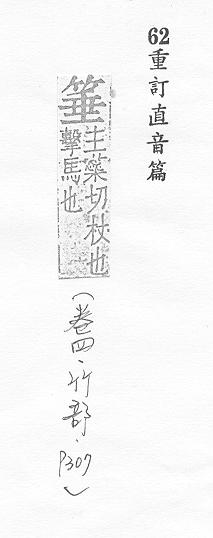 62重訂直音篇
箠
主蘂切杖也
擊馬也
(卷四·竹部·P307)